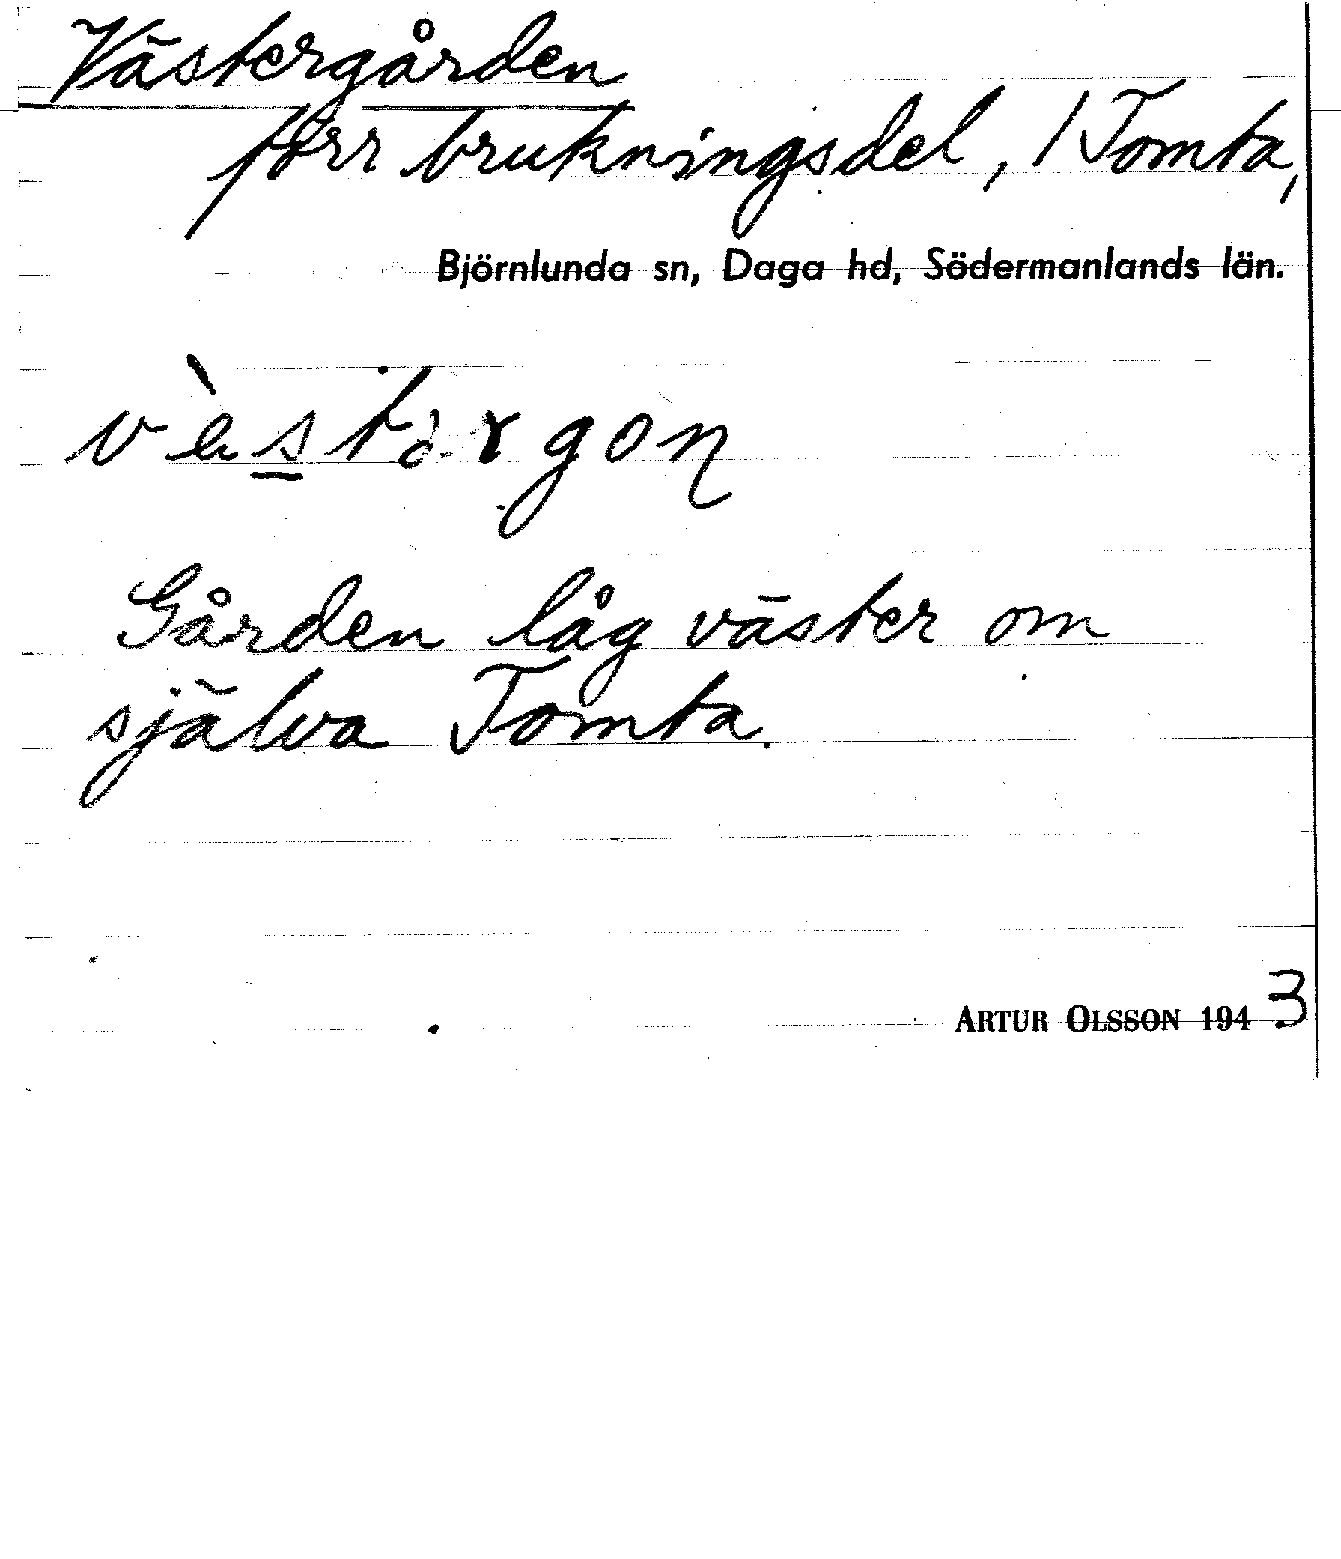 Västergården
förr brukningsdel, 1 Tomta,
Björnlunda sn, Daga hd, Södermanlands län.
Gården låg väster om
själva Tomta.
ARTUR OLSSON 1943